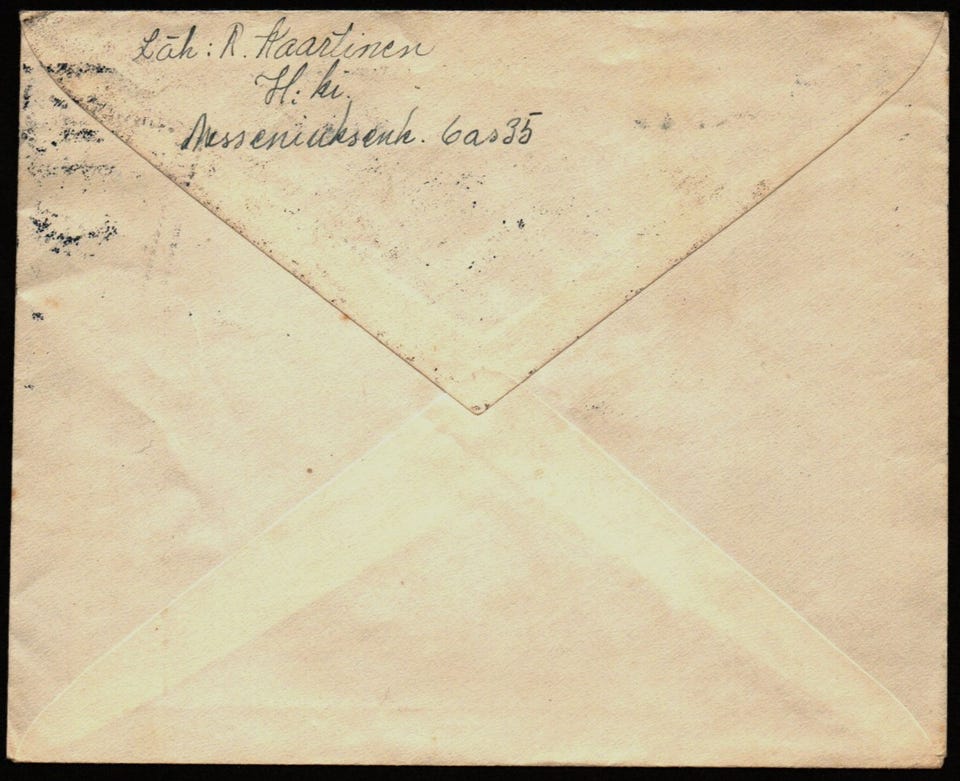 Läh: R. Kaartinen
H:ki.
Messeniuksenk. 6 as 35